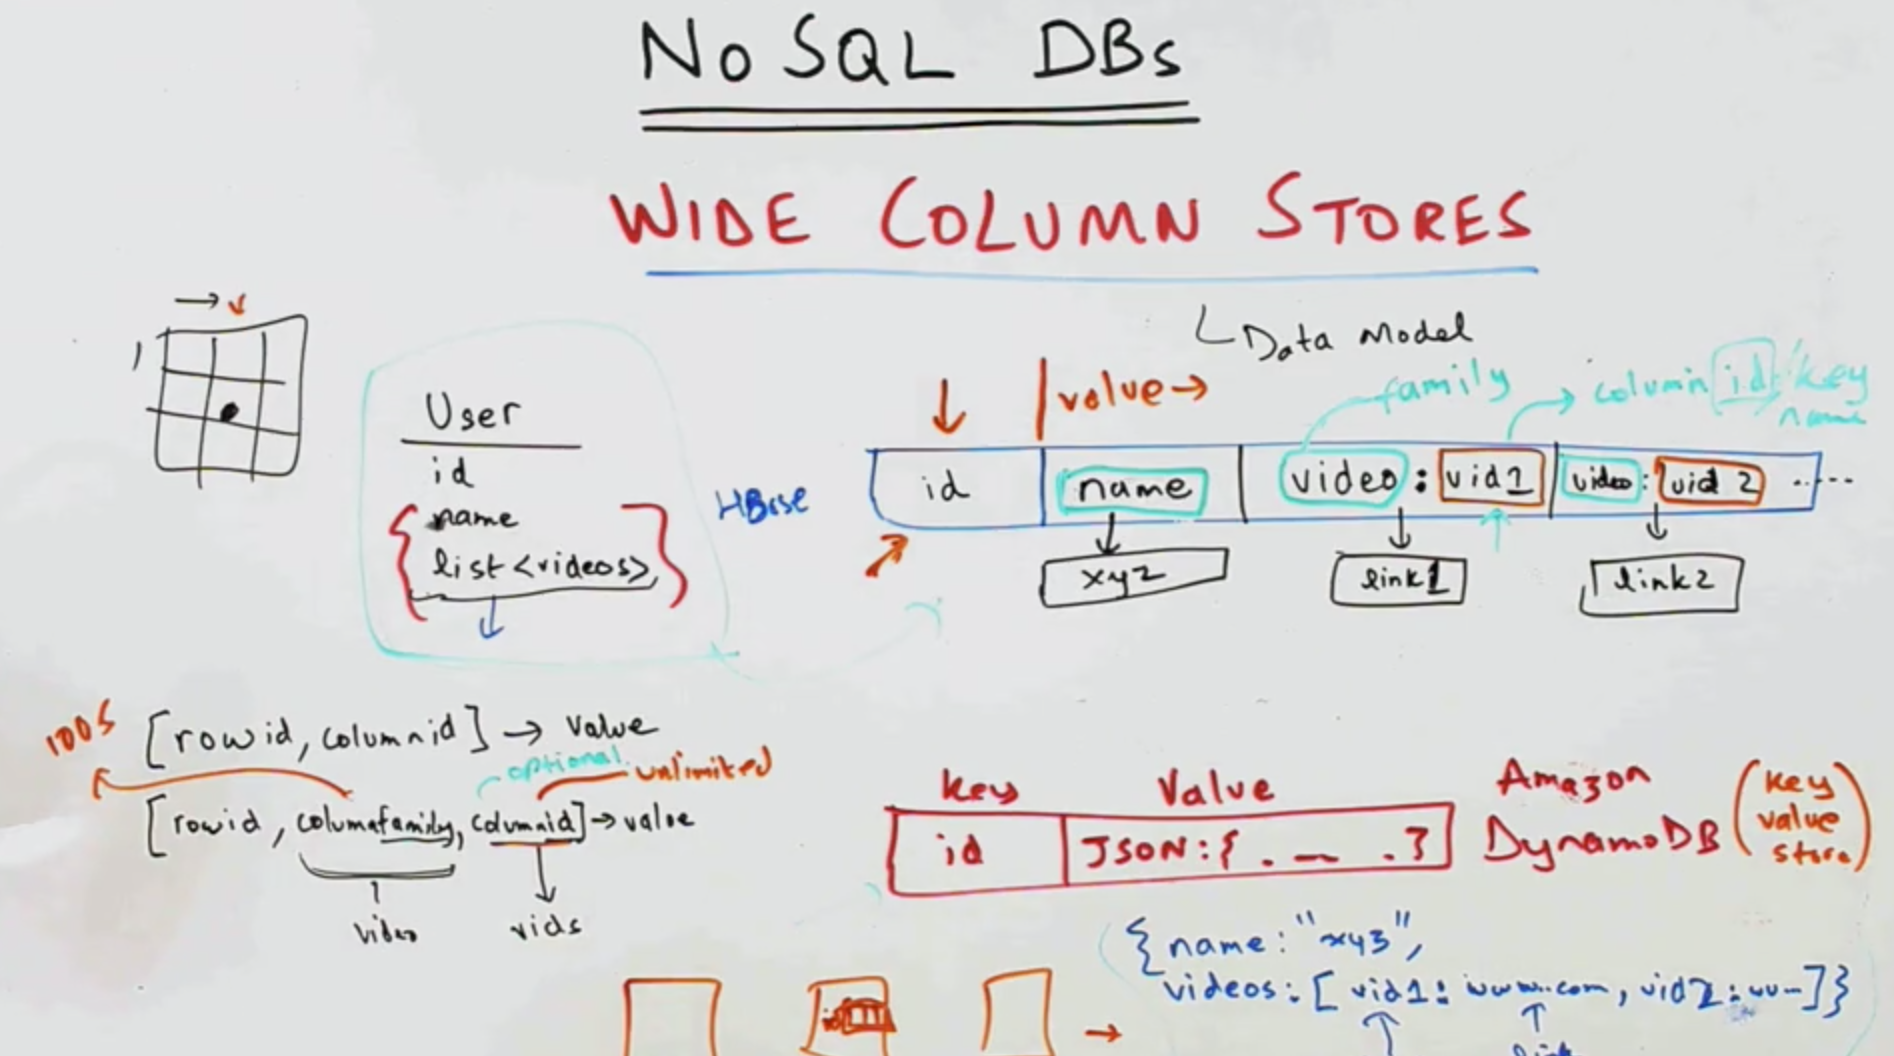 NoSQL DBs
WIDE COLUMN STORES
Data Model
User
id
name
list<videos>
HBase
value→
family
column id/key
name
id
name
video : vid1
video : vid 2 .....
xyz
link1
link2
100s
[rowid, columnid] → value
optional
unlimited
[rowid, columnfamily, columnid] → value
video
vids
key
Value
id
JSON:{ . — .}
Amazon
DynamoDB
(key
value
store)
{name: "xyz",
videos: [ vid1: www.com, vid2: ww-]}
id
link